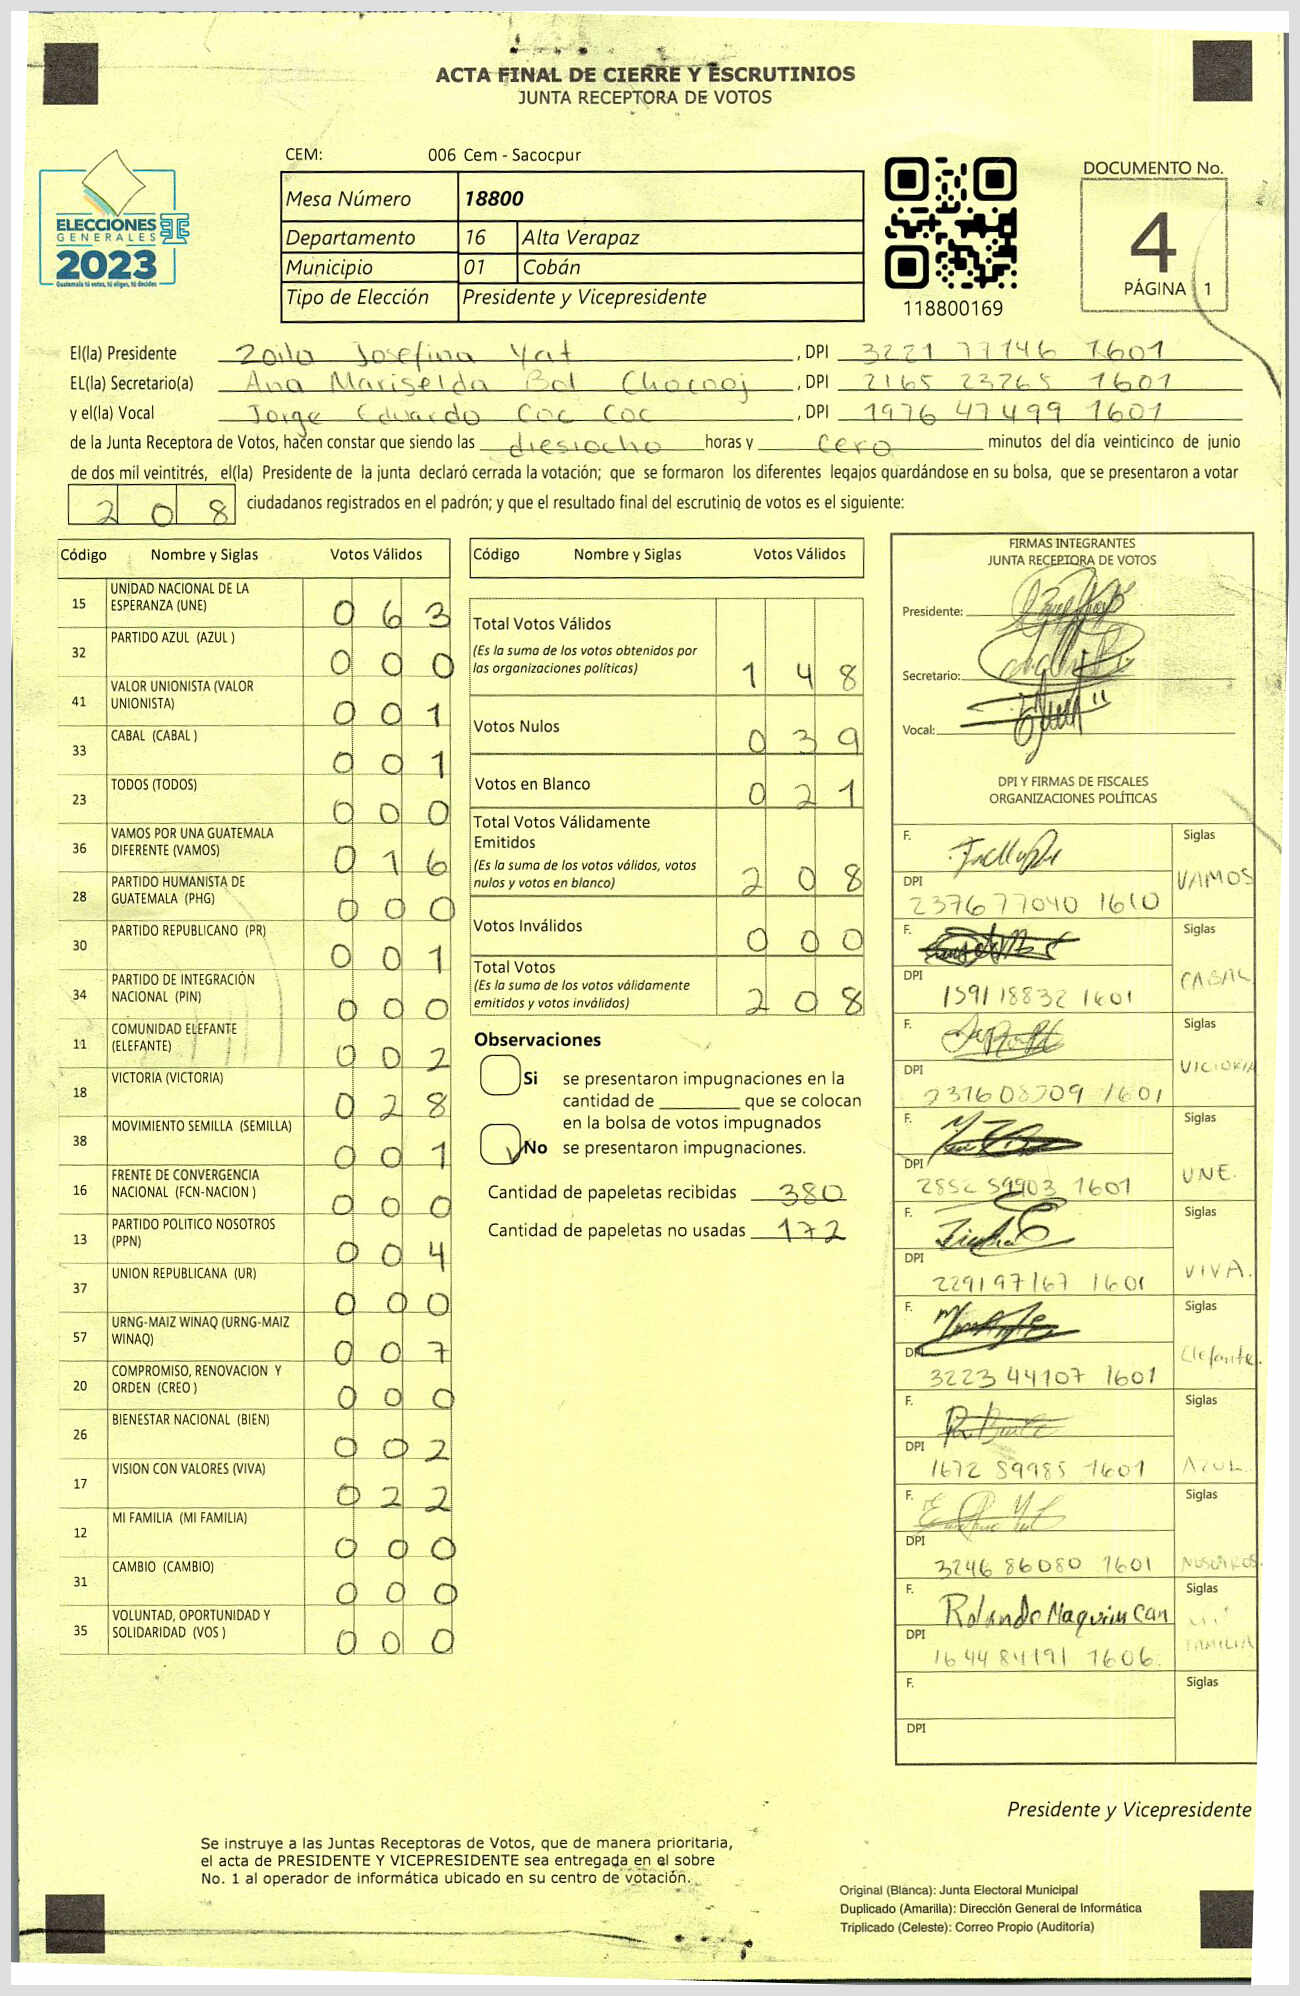 ACTA FINAL DE CIERRE Y ESCRUTINIOS
JUNTA RECEPTORA DE VOTOS
CEM: 006 Cem - Sacocpur
ELECCIONES
GENERALES
2023
Guatemala tú votas, tú eliges, tú decides
Mesa Número 18800
Departamento 16 Alta Verapaz
Municipio 01 Cobán
Tipo de Elección Presidente y Vicepresidente
118800169
DOCUMENTO No.
4
PÁGINA 1
El(la) Presidente Zoila Josefina Yat , DPI 3221 77146 1601
EL(la) Secretario(a) Ana Mariselda Bol Chocooj , DPI 2165 23265 1601
y el(la) Vocal Jorge Eduardo Coc Coc , DPI 1976 47499 1601
de la Junta Receptora de Votos, hacen constar que siendo las diesiocho horas y cero minutos del día veinticinco de junio
de dos mil veintitrés, el(la) Presidente de la junta declaró cerrada la votación; que se formaron los diferentes legajos guardándose en su bolsa, que se presentaron a votar
208 ciudadanos registrados en el padrón; y que el resultado final del escrutinio de votos es el siguiente:
Código Nombre y Siglas Votos Válidos
15 UNIDAD NACIONAL DE LA
ESPERANZA (UNE) 063
32 PARTIDO AZUL (AZUL ) 000
41 VALOR UNIONISTA (VALOR
UNIONISTA) 001
33 CABAL (CABAL ) 001
23 TODOS (TODOS) 000
36 VAMOS POR UNA GUATEMALA
DIFERENTE (VAMOS) 016
28 PARTIDO HUMANISTA DE
GUATEMALA (PHG) 000
30 PARTIDO REPUBLICANO (PR) 001
34 PARTIDO DE INTEGRACIÓN
NACIONAL (PIN) 000
11 COMUNIDAD ELEFANTE
(ELEFANTE) 002
18 VICTORIA (VICTORIA) 028
38 MOVIMIENTO SEMILLA (SEMILLA) 001
16 FRENTE DE CONVERGENCIA
NACIONAL (FCN-NACION ) 000
13 PARTIDO POLITICO NOSOTROS
(PPN) 004
37 UNION REPUBLICANA (UR) 000
57 URNG-MAIZ WINAQ (URNG-MAIZ
WINAQ) 007
20 COMPROMISO, RENOVACION Y
ORDEN (CREO ) 000
26 BIENESTAR NACIONAL (BIEN) 002
17 VISION CON VALORES (VIVA) 022
12 MI FAMILIA (MI FAMILIA) 000
31 CAMBIO (CAMBIO) 000
35 VOLUNTAD, OPORTUNIDAD Y
SOLIDARIDAD (VOS ) 000
Código Nombre y Siglas Votos Válidos
Total Votos Válidos
(Es la suma de los votos obtenidos por
las organizaciones políticas) 148
Votos Nulos 039
Votos en Blanco 021
Total Votos Válidamente
Emitidos
(Es la suma de los votos válidos, votos
nulos y votos en blanco) 208
Votos Inválidos 000
Total Votos
(Es la suma de los votos válidamente
emitidos y votos inválidos) 208
Observaciones
Si se presentaron impugnaciones en la
cantidad de ________ que se colocan
en la bolsa de votos impugnados
No se presentaron impugnaciones.
Cantidad de papeletas recibidas 380
Cantidad de papeletas no usadas 172
FIRMAS INTEGRANTES
JUNTA RECEPTORA DE VOTOS
Presidente:
Secretario:
Vocal:
DPI Y FIRMAS DE FISCALES
ORGANIZACIONES POLÍTICAS
F. Siglas
DPI VAMOS
2376 77040 1610
F. Siglas
DPI CABAL
1591 18832 1601
F. Siglas
DPI VICTORIA
2376 08709 1601
F. Siglas
DPI UNE.
2852 59903 1601
F. Siglas
DPI VIVA.
2291 97167 1601
F. Siglas
DPI Elefante.
3223 44107 1601
F. Siglas
DPI AZUL
1672 89985 1601
F. Siglas
DPI NOSOTROS.
3246 86080 1601
F. Rolando Maquim Can Siglas
DPI MI FAMILIA
1644 84191 1606.
F. Siglas
DPI
Presidente y Vicepresidente
Se instruye a las Juntas Receptoras de Votos, que de manera prioritaria,
el acta de PRESIDENTE Y VICEPRESIDENTE sea entregada en el sobre
No. 1 al operador de informática ubicado en su centro de votación.
Original (Blanca): Junta Electoral Municipal
Duplicado (Amarilla): Dirección General de Informática
Triplicado (Celeste): Correo Propio (Auditoría)